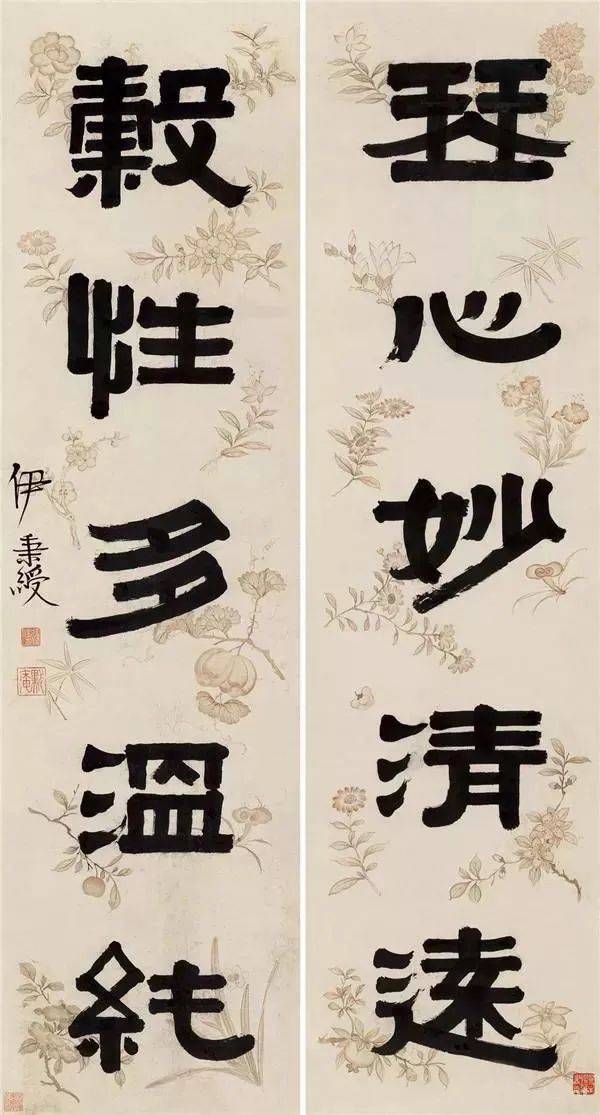 琴心妙清遠
穀性多溫純
伊秉綬